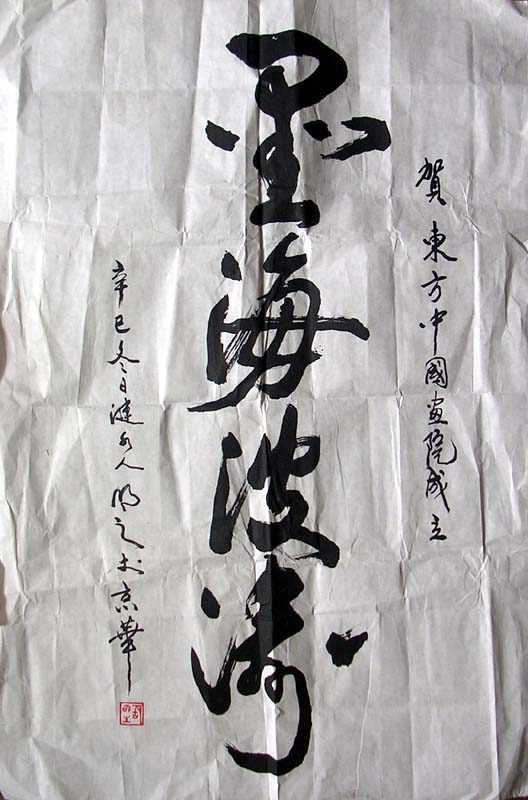 賀東方中國画院成立
墨海波濤
辛巳冬日漣水人明之於京華